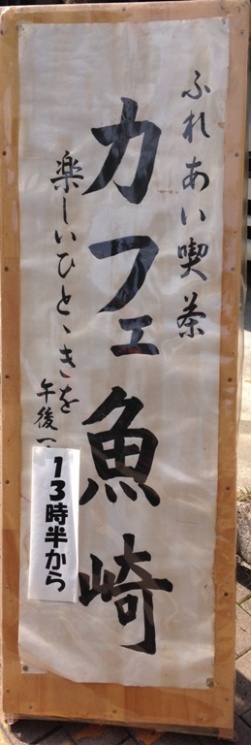 ふれあい喫茶
カフェ魚崎
楽しいひとゝきを
午後一
13時半から